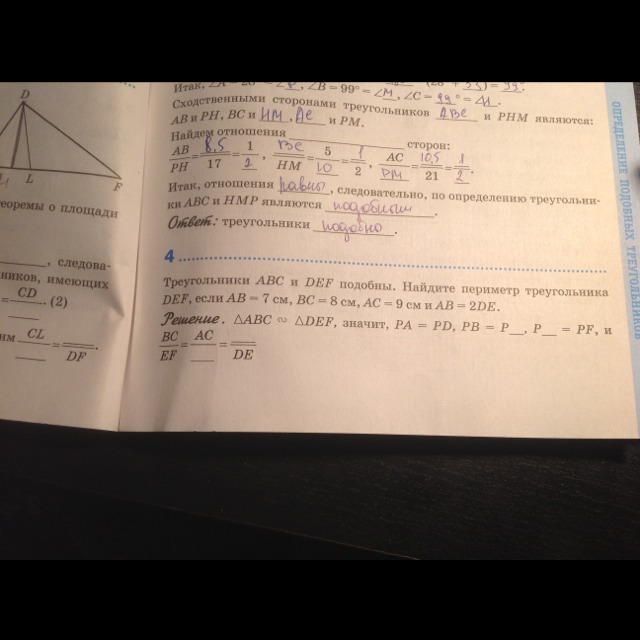 D
L
F
теоремы о площади
, следова-
ников, имеющих
= CD/___ . (2)
им CL/___ = ___/DF .
Итак, ∠B = 99° = ∠M, ∠C =
Сходственными сторонами треугольников ABC и PHM являются:
AB и PH, BC и HM, AC и PM.
Найдем отношения ______ сторон:
AB/PH = 8,5/17 = 1/2, BC/HM = 5/10 = 1/2, AC/PM = 10,5/21 = 1/2.
Итак, отношения равны, следовательно, по определению треугольни-
ки ABC и HMP являются подобными.
Ответ: треугольники подобно.
4
Треугольники ABC и DEF подобны. Найдите периметр треугольника
DEF, если AB = 7 см, BC = 8 см, AC = 9 см и AB = 2DE.
Решение. △ABC ∾ △DEF, значит, PA = PD, PB = P__, P__ = PF, и
BC/EF = AC/___ = ___/DE
ОПРЕДЕЛЕНИЕ ПОДОБНЫХ ТРЕУГОЛЬНИКОВ